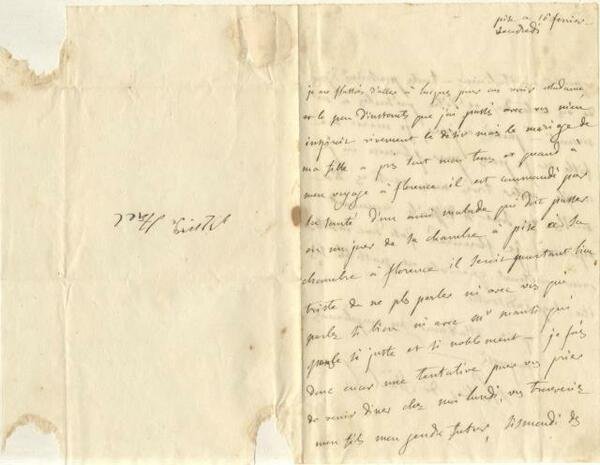 pise ce 16 fevrier
vendredi
je me flattois d'aller à lucques pour vous voir madame,
et le peu d'instants que j'ai passés avec vous m'en
inspiroit vivement le désir mais le mariage de
ma fille a pris tout mon tems et quand à
mon voyage à florence il est commandé par
la santé d'un ami malade qui doit passer
en un jour de sa chambre à pise à sa
chambre à florence il seroit pourtant bien
triste de ne pls parler ni avec vous qui
parlez si bien ni avec mr qui
pense si juste et si noblement — je fais
donc encor une tentative pour vous prier
de venir diner chez moi lundi, vous trouverez
mon fils mon gendre futur, Sismondi de
Stael